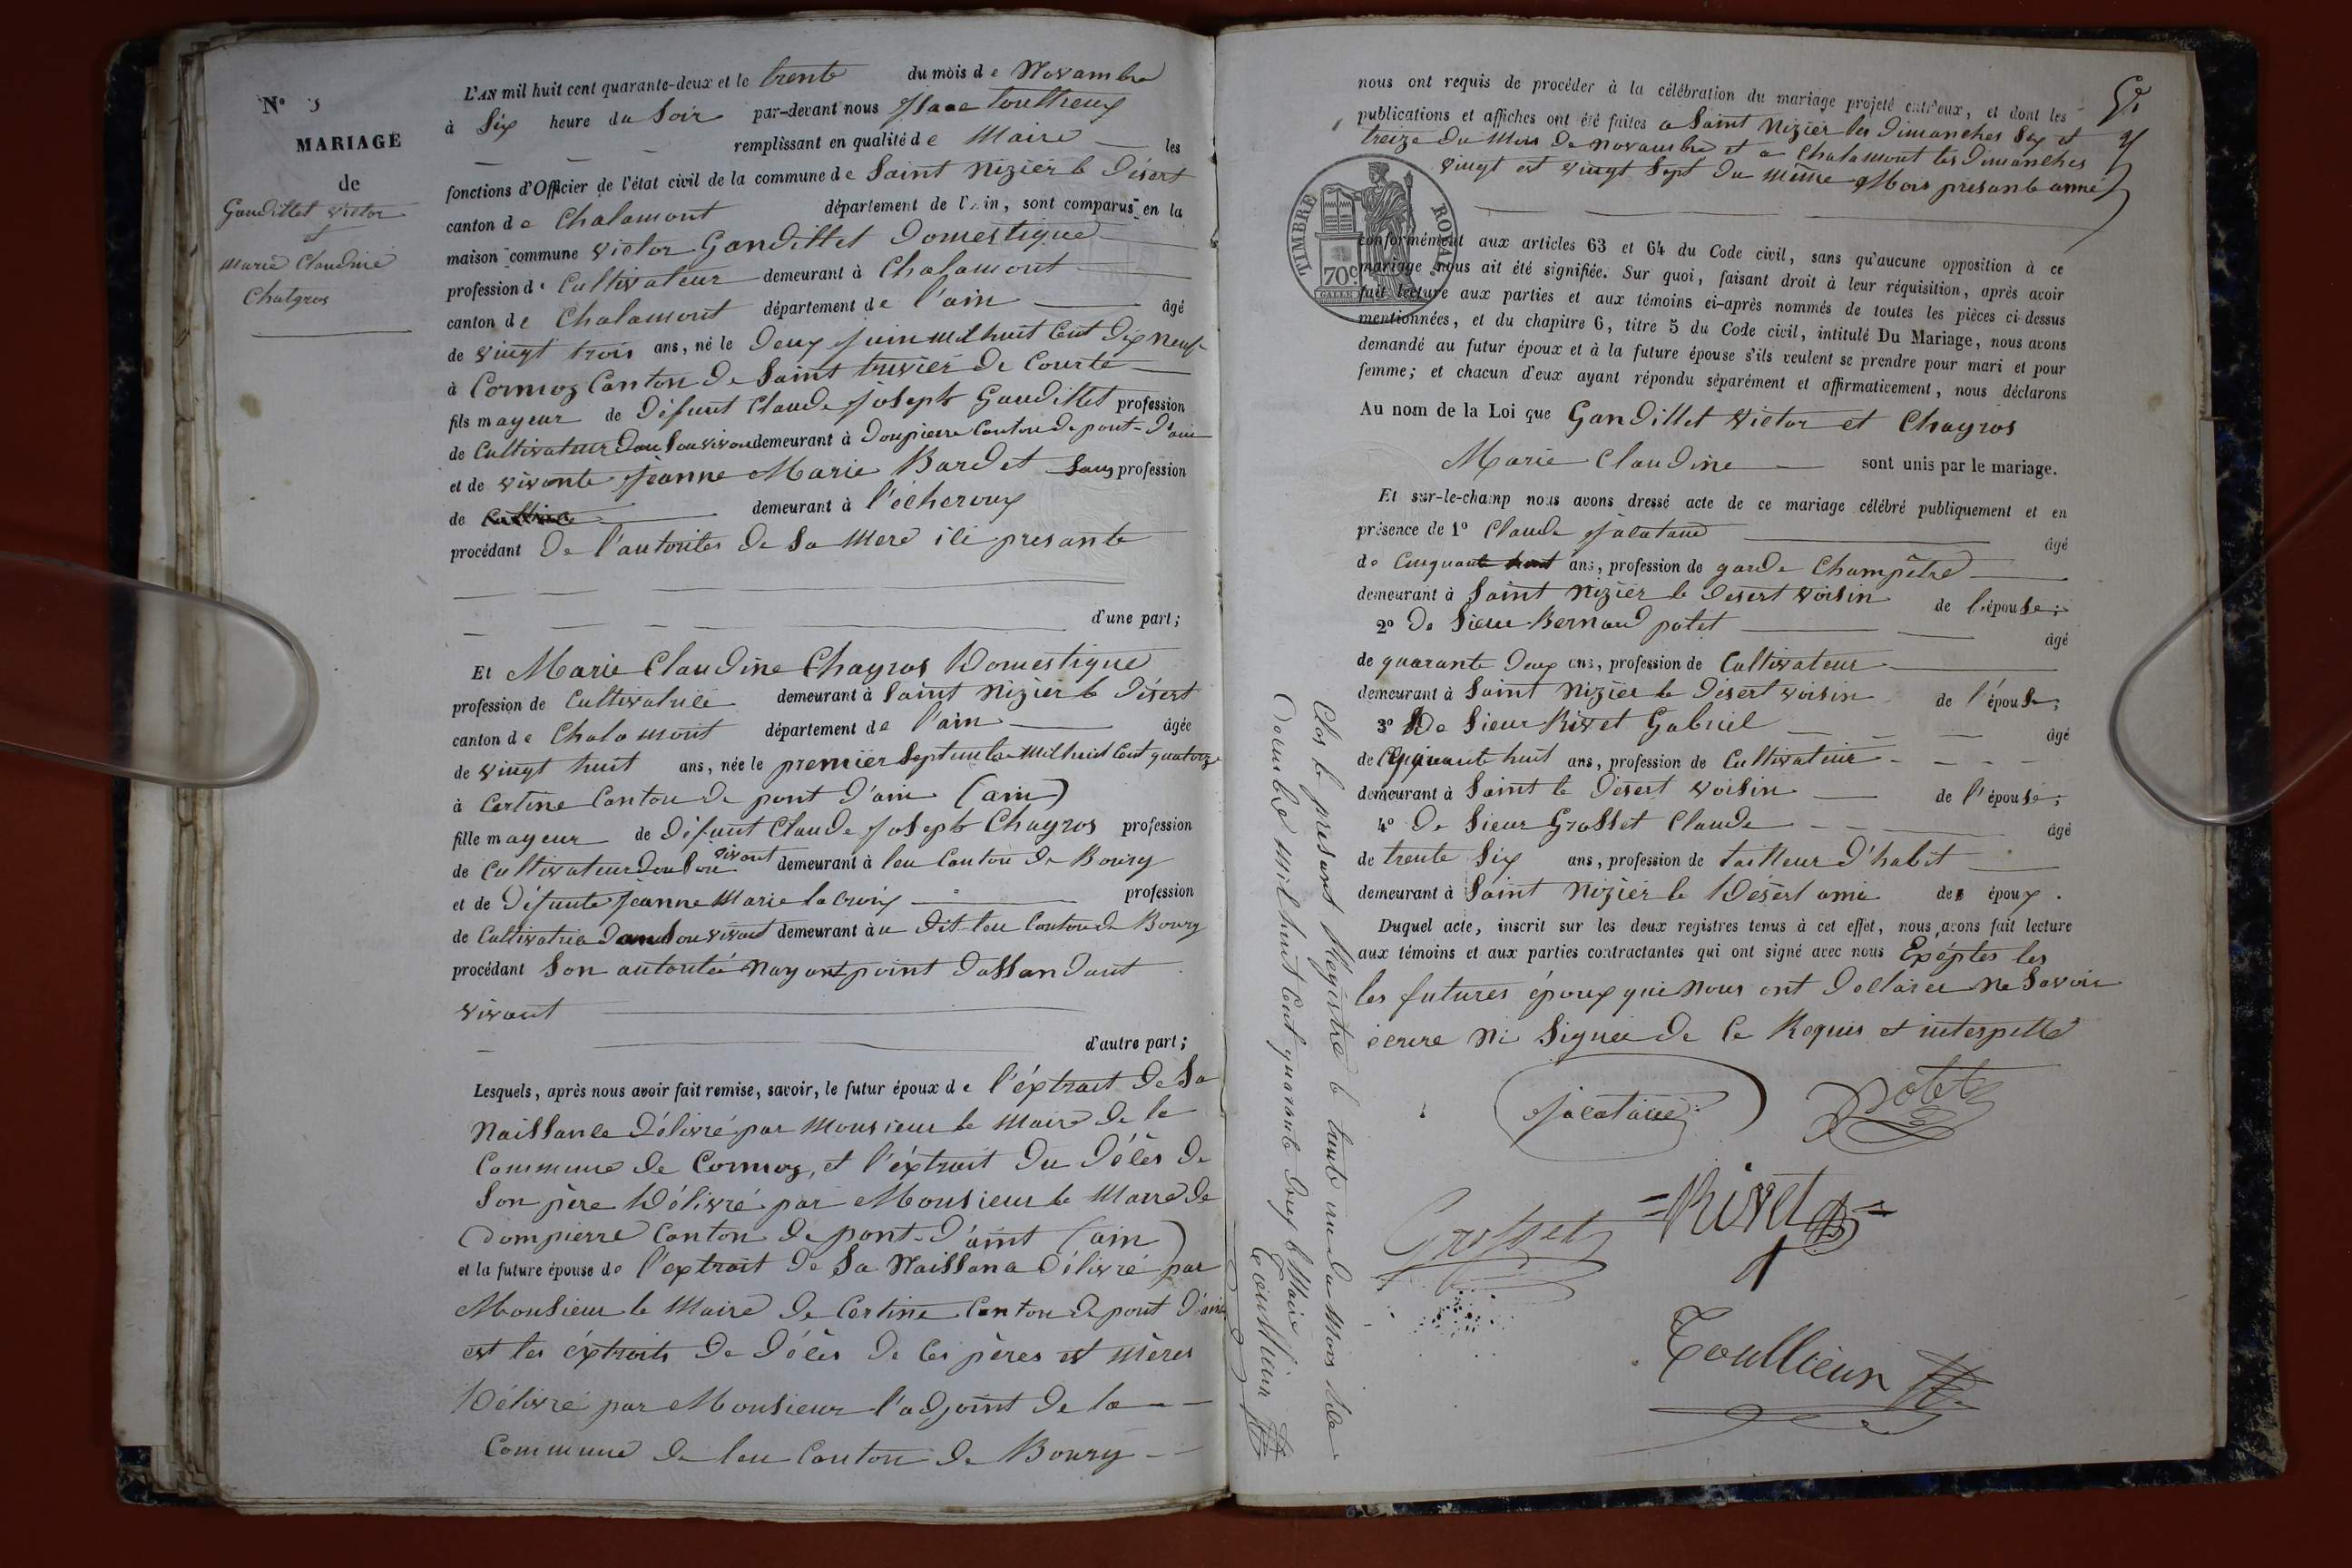 N° 3
MARIAGE
de
Gandillet Victor
et
Marie Claudine
Chalgros
L'AN mil huit cent quarante-deux et le trente du mois de Novambre
à Six heure du Soir par-devant nous Isaac Toullieux
remplissant en qualité de Maire les
fonctions d'Officier de l'état civil de la commune de Saint Nizier le Désert
canton de Chalamont département de l'Ain, sont comparus en la
maison commune Victor Gandillet Domestique
profession de Cultivateur demeurant à Chalamont
canton de Chalamont département de l'ain âgé
de vingt trois ans, né le Deux Juin Mil huit Cent Dix Neuf
à Cormoz Canton De Saint trivier De Courte
fils mayeur de Défunt Claude Joseph Gandillet profession
de Cultivateur Dan Son vivan demeurant à Donpierre Canton De pont-D'ain
et de vivante Jeanne Marie Bardet Sans profession
de demeurant à l'écheroux
procédant De l'autorités De Sa Mere ici presante
d'une part;
Et Marie Claudine Chagros Domestique
profession de Cultivatrice demeurant à Saint Nizier le Désert
canton de Chalamont département de l'ain âgée
de vingt huit ans, née le premier Septembre Mil huit Cent quatorze
à Certine Canton De pont D'ain (ain)
fille mayeur de Défunt Claude Joseph Chagros profession
de Cultivateur Dan Son vivant demeurant à leu Canton De Bourg
et de Défunte Jeanne Marie lacroix profession
de Cultivatrice Dans Son vivant demeurant àu Dit leu Canton De Bourg
procédant Son autoritée Nayant point Dassandant
vivant
d'autre part;
Lesquels, après nous avoir fait remise, savoir, le futur époux de l'éxtrait De Sa
Naissance Délivré par Monsieur le Maire De la
Commune De Cormoz, et l'éxtrait Du Décès De
Son père Délivré par Monsieur le Maire De
Dompierre Canton De pont-D'aint (ain)
et la future épouse de l'extrait De Sa Naissance Délivré par
Monsieur le Maire De Certine Canton De pont D'ain
est les éxtraits De Décès De Ces pères et mères
Délivré par Monsieur l'adjoint De la
Commune De leu Canton De Bourg
nous ont requis de procéder à la célébration du mariage projeté entr'eux, et dont les
publications et affiches ont été faites a Saint Nizier les Dimanches Six et
treize Du Mois De Novambre et a Chalamont les Dimanches
vingt est vingt Sept Du même Mois présante année
TIMBRE ROYAL
70 c.
conformément aux articles 63 et 64 du Code civil, sans qu'aucune opposition à ce
mariage nous ait été signifiée. Sur quoi, faisant droit à leur réquisition, après avoir
fait lecture aux parties et aux témoins ci-après nommés de toutes les pièces ci-dessus
mentionnées, et du chapitre 6, titre 5 du Code civil, intitulé Du Mariage, nous avons
demandé au futur époux et à la future épouse s'ils veulent se prendre pour mari et pour
femme; et chacun d'eux ayant répondu séparément et affirmativement, nous déclarons
Au nom de la Loi que Gandillet Victor et Chagros
Marie Claudine sont unis par le mariage.
Et sur-le-champ nous avons dressé acte de ce mariage célébré publiquement et en
présence de 1° Claude Jacataud âgé
de Cinquante huit ans, profession de garde Champêtre
demeurant à Saint Nizier le Desert voisin de l'épouse;
2° De Sieur Bernard potet âgé
de quarante Deux ans, profession de Cultivateur
demeurant à Saint Nizier le Désert voisin de l'épouse;
3° De Sieur Rivet Gabriel âgé
de Cinquante huit ans, profession de Cultivateur
demeurant à Saint le Désert voisin de l'épouse;
4° De Sieur Grosset Claude âgé
de trente Six ans, profession de tailleur D'habit
demeurant à Saint Nizier le Désert ami de époux.
Duquel acte, inscrit sur les deux registres tenus à cet effet, nous avons fait lecture
aux témoins et aux parties contractantes qui ont signé avec nous Exéptés les
les futures époux qui Nous ont Déclarer Ne Savoir
écrire Ni Signée De Ce Requis et interpellé
Potet
Rivet
Grosset
Toullieux
Clos le présant Régistre le trente un Du Mois De
Décembre Mil huit Cent quarante Deux le Maire
Toullieux